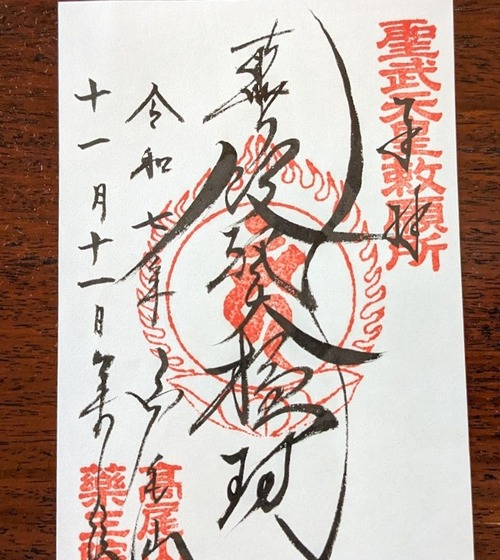 聖武天皇敕願所
奉拝
飯縄大権現
令和七年 高尾山
十一月十一日 薬王院
高尾
薬王